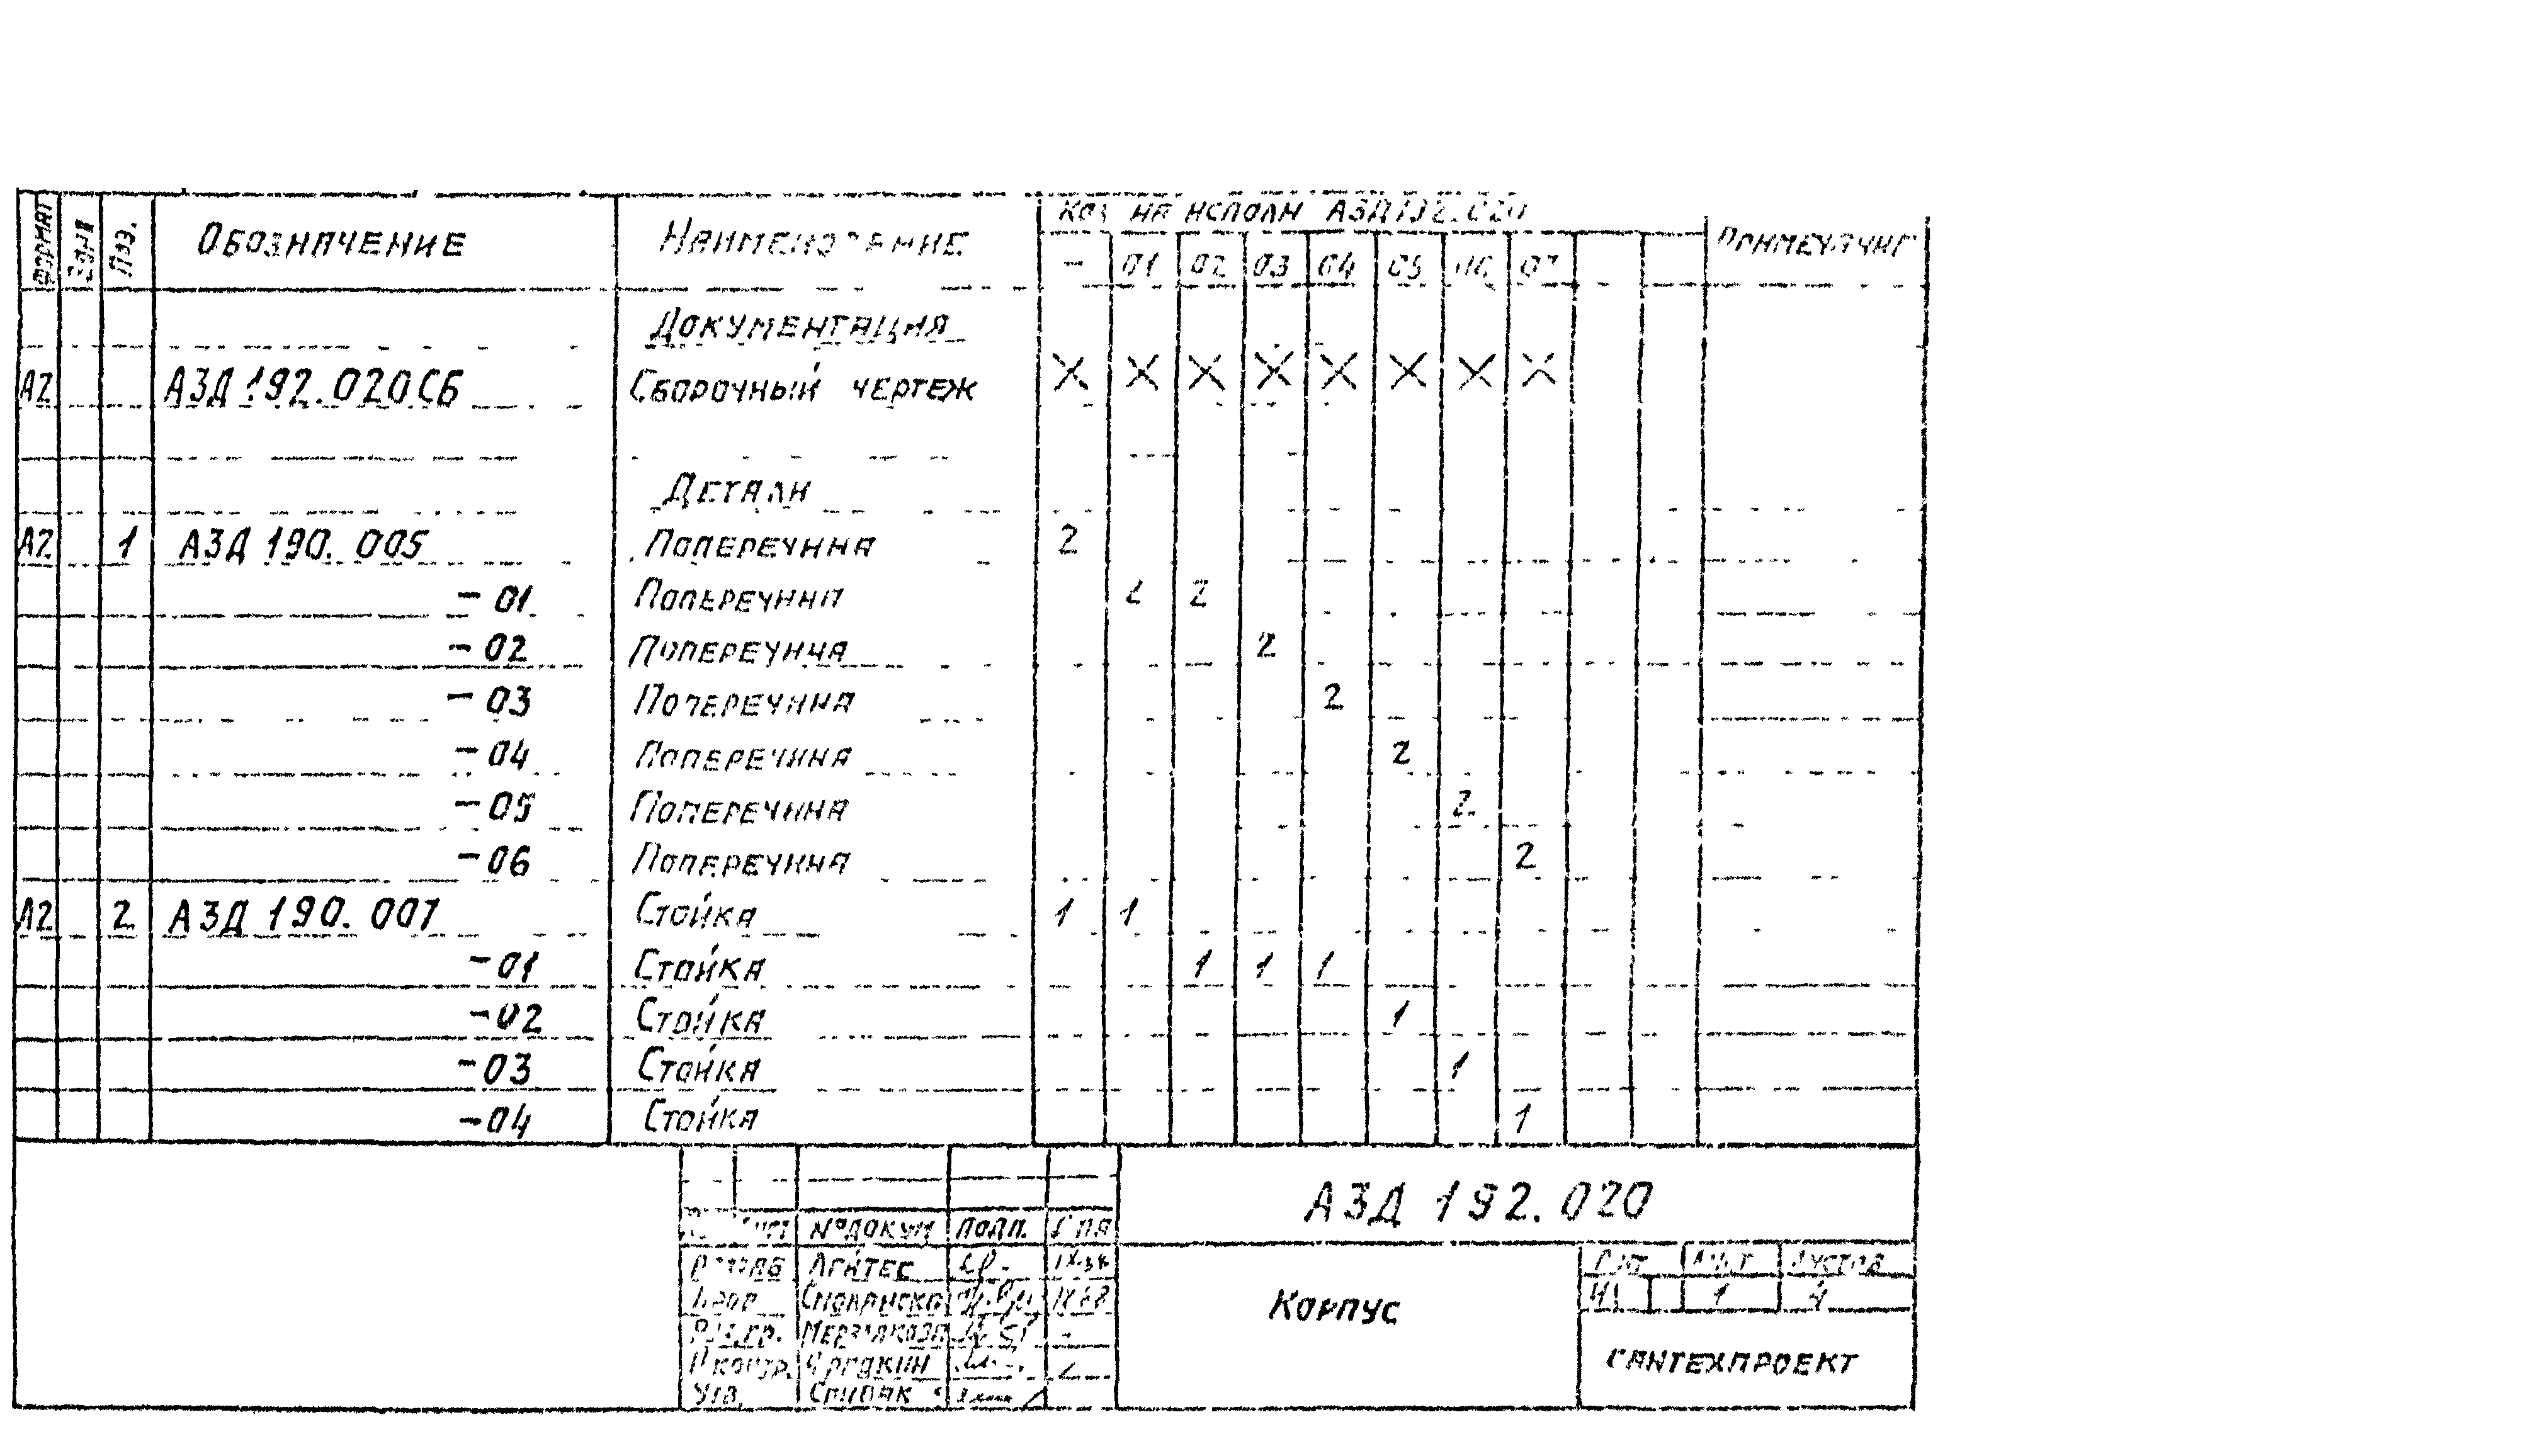 Формат Зона Поз. Обозначение Наименование Кол на исполн АЗД192.020 Примечание
- 01 02 03 04 05 06 07
Документация
А2 АЗД 192.020СБ Сборочный чертеж X X X X X X X X
Детали
А2 1 АЗД 190.005 Поперечина 2
-01 Поперечина 2 2
-02 Поперечина 2
-03 Поперечина 2
-04 Поперечина 2
-05 Поперечина 2
-06 Поперечина 2
А2 2 АЗД 190.007 Стойка 1 1
-01 Стойка 1 1 1
-02 Стойка 1
-03 Стойка 1
-04 Стойка 1
АЗД 192.020
Лист №докум Подп.
Разраб
Корпус
Лит Лист Листов
1 4
Рук.гр.
Н.контр.
Утв. Спивак
САНТЕХПРОЕКТ